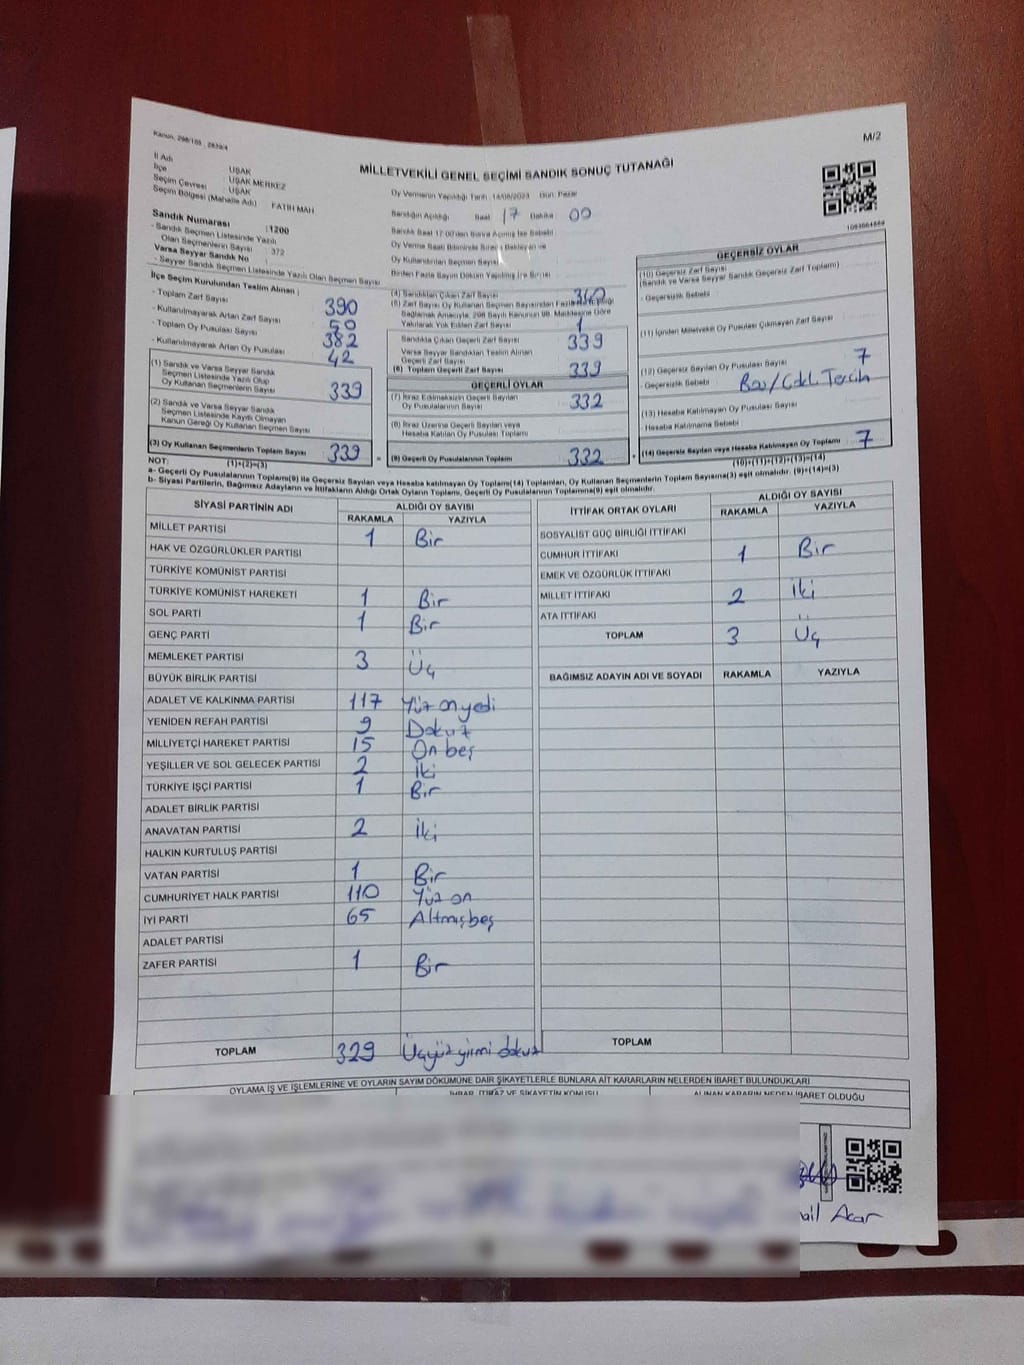 Kanun, 298/105 , 2839/4
M/2
MİLLETVEKİLİ GENEL SEÇİMİ SANDIK SONUÇ TUTANAĞI
İl Adı : UŞAK
İlçe : UŞAK MERKEZ
Seçim Çevresi : UŞAK
Seçim Bölgesi (Mahalle Adı) FATİH MAH
Sandık Numarası :1200
- Sandık Seçmen Listesinde Yazılı
Olan Seçmenlerin Sayısı : 372
Varsa Seyyar Sandık No :
- Seyyar Sandık Seçmen Listesinde Yazılı Olan Seçmen Sayısı
İlçe Seçim Kurulundan Teslim Alınan ;
- Toplam Zarf Sayısı 390
- Kullanılmayarak Artan Zarf Sayısı 50
- Toplam Oy Pusulası Sayısı 382
- Kullanılmayarak Artan Oy Pusulası 42
(1) Sandık ve Varsa Seyyar Sandık
Seçmen Listesinde Yazılı Olup
Oy Kullanan Seçmenlerin Sayısı 339
(2) Sandık ve Varsa Seyyar Sandık
Seçmen Listesinde Kayıtlı Olmayan
Kanun Gereği Oy Kullanan Seçmen Sayısı
(3) Oy Kullanan Seçmenlerin Toplam Sayısı 339
Oy Vermenin Yapıldığı Tarih 14/05/2023 Gün: Pazar
Sandığın Açıldığı Saat 17 Dakika 00
Sandık Saat 17:00'den Sonra Açılmış İse Sebebi
Oy Verme Saati Bitiminde Sırada Bekleyen ve
Oy Kullandırılan Seçmen Sayısı
Birden Fazla Sayım Döküm Yapılmış İse Sırası
(4) Sandıktan Çıkan Zarf Sayısı 340
(5) Zarf Sayısı Oy Kullanan Seçmen Sayısından Fazla İse Eşitliği
Sağlamak Amacıyla, 298 Sayılı Kanunun 98. Maddesine Göre
Yakılarak Yok Edilen Zarf Sayısı 1
Sandıkta Çıkan Geçerli Zarf Sayısı 339
Varsa Seyyar Sandıktan Teslim Alınan
Geçerli Zarf Sayısı
(6) Toplam Geçerli Zarf Sayısı 339
GEÇERLİ OYLAR
(7) İtiraz Edilmeksizin Geçerli Sayılan
Oy Pusulalarının Sayısı 332
(8) İtiraz Üzerine Geçerli Sayılan veya
Hesaba Katılan Oy Pusulası Toplamı
(9) Geçerli Oy Pusulalarının Toplamı 332
GEÇERSİZ OYLAR
(10) Geçersiz Zarf Sayısı
(Sandık ve Varsa Seyyar Sandık Geçersiz Zarf Toplamı)
- Geçersizlik Sebebi :
(11) İçinden Milletvekili Oy Pusulası Çıkmayan Zarf Sayısı
(12) Geçersiz Sayılan Oy Pusulası Sayısı 7
- Geçersizlik Sebebi : Boş/Çokl. Tercih
(13) Hesaba Katılmayan Oy Pusulası Sayısı
- Hesaba Katılmama Sebebi :
(14) Geçersiz Sayılan veya Hesaba Katılmayan Oy Toplamı 7
NOT: (1)+(2)=(3) (10)+(11)+(12)+(13)=(14)
a- Geçerli Oy Pusulalarının Toplamı(9) ile Geçersiz Sayılan veya Hesaba katılmayan Oy Toplam(14) Toplamları, Oy Kullanan Seçmenlerin Toplam Sayısına(3) eşit olmalıdır. (9)+(14)=(3)
b- Siyasi Partilerin, Bağımsız Adayların ve İttifakların Aldığı Ortak Oyların Toplamı, Geçerli Oy Pusulalarının Toplamına(9) eşit olmalıdır.
SİYASİ PARTİNİN ADI ALDIĞI OY SAYISI
RAKAMLA YAZIYLA
MİLLET PARTİSİ 1 Bir
HAK VE ÖZGÜRLÜKLER PARTİSİ
TÜRKİYE KOMÜNİST PARTİSİ
TÜRKİYE KOMÜNİST HAREKETİ 1 Bir
SOL PARTİ 1 Bir
GENÇ PARTİ
MEMLEKET PARTİSİ 3 Üç
BÜYÜK BİRLİK PARTİSİ
ADALET VE KALKINMA PARTİSİ 117 Yüz onyedi
YENİDEN REFAH PARTİSİ 9 Dokuz
MİLLİYETÇİ HAREKET PARTİSİ 15 On beş
YEŞİLLER VE SOL GELECEK PARTİSİ 2 İki
TÜRKİYE İŞÇİ PARTİSİ 1 Bir
ADALET BİRLİK PARTİSİ
ANAVATAN PARTİSİ 2 İki
HALKIN KURTULUŞ PARTİSİ
VATAN PARTİSİ 1 Bir
CUMHURİYET HALK PARTİSİ 110 Yüz on
İYİ PARTİ 65 Altmışbeş
ADALET PARTİSİ
ZAFER PARTİSİ 1 Bir
TOPLAM 329 Üçyüz yirmi dokuz
İTTİFAK ORTAK OYLARI ALDIĞI OY SAYISI
RAKAMLA YAZIYLA
SOSYALİST GÜÇ BİRLİĞİ İTTİFAKI
CUMHUR İTTİFAKI 1 Bir
EMEK VE ÖZGÜRLÜK İTTİFAKI
MİLLET İTTİFAKI 2 İki
ATA İTTİFAKI
TOPLAM 3 Üç
BAĞIMSIZ ADAYIN ADI VE SOYADI RAKAMLA YAZIYLA
TOPLAM
OYLAMA İŞ VE İŞLEMLERİNE VE OYLARIN SAYIM DÖKÜMÜNE DAİR ŞİKAYETLERLE BUNLARA AİT KARARLARIN NELERDEN İBARET BULUNDUKLARI
İHBAR, İTİRAZ VE ŞİKAYETİN KONUSU
ALINAN KARARIN NEDEN İBARET OLDUĞU
Acar